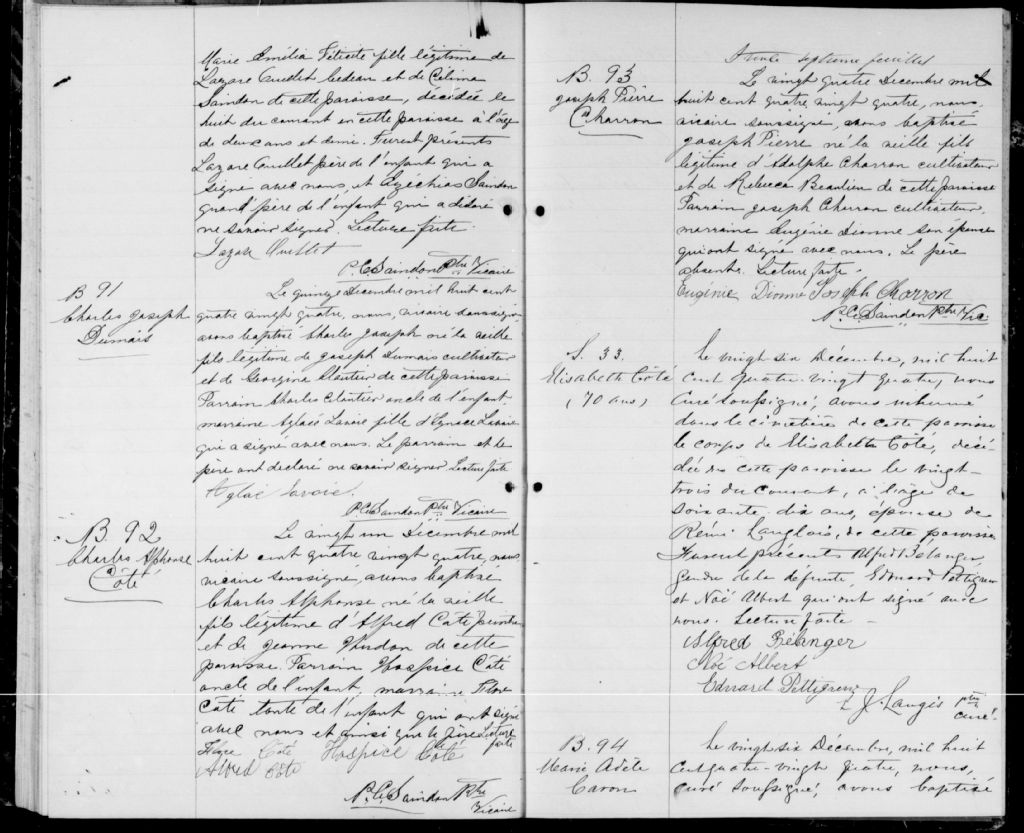 Marie Emélia Félicité fille légitime de
Lazare Ouellet Cedeau et de Célina
Saindon de cette paroisse, décédée le
huit du courant en cette paroisse à l'âge
de deux ans et demi. Furent présents
Lazare Ouellet père de l'enfant qui a
signé avec nous, et Ezéchias Saindon
grand père de l'enfant qui a déclaré
ne savoir signer. Lecture faite.
Lazare Ouellet
P.C. Saindon Ptre Vicaire
B 91
Charles Joseph
Dumais
Le quinze Décembre mil huit cent
quatre vingt quatre, nous, vicaire soussigné
avons baptisé Charles Joseph né la veille
fils légitime de Joseph Dumais cultivateur
et de Georgina Cloutier de cette paroisse
Parrain Charles Cloutier oncle de l'enfant
marraine Aglaé Lavoie fille d'Ignace Lavoie
qui a signé avec nous. Le parrain et le
père ont déclaré ne savoir signer Lecture faite
Aglaé Lavoie.
P.C. Saindon Ptre Vicaire
B. 92
Charles Alphonse
Côté
Le vingt un Décembre mil
huit cent quatre vingt quatre, nous
vicaire soussigné, avons baptisé
Charles Alphonse né la veille
fils légitime d'Alfred Côté peintre
et de Jeanne Hudon de cette
paroisse. Parrain Hospice Côté
oncle de l'enfant, marraine Flore
Côté tante de l'enfant qui ont signé
avec nous et ainsi que le père Lecture
faite
Flore Côté Hospice Côté
Alfred Côté
P.C. Saindon Ptre
Vicaire
Trente septième feuillet
B. 93
Joseph Pierre
Charron
Le vingt quatre Décembre mil
huit cent quatre vingt quatre, nous,
vicaire soussigné, avons baptisé
Joseph Pierre né la veille fils
légitime d'Adolphe Charron cultivateur
et de Rebecca Beaulieu de cette paroisse
Parrain Joseph Charron cultivateur,
marraine Eugénie Dionne son épouse
qui ont signé avec nous. Le père
absent. Lecture faite.
Eugénie Dionne Joseph Charron
P.C. Saindon Ptre Vic
S. 33.
Elisabeth Côté
(70 ans)
Le vingt six Décembre, mil huit
cent quatre-vingt quatre, nous
curé soussigné, avons inhumé
dans le cimetière de cette paroisse
le corps de Elisabeth Côté, décé-
dée en cette paroisse le vingt-
trois du courant, à l'âge de
soixante-dix ans, épouse de
Rémi Langlois, de cette paroisse
Furent présents Alfred Bélanger,
gendre de la défunte, Edouard Pettigrew
et Noé Albert qui ont signé avec
nous. Lecture faite -
Alfred Bélanger
Noé Albert
Edouard Pettigrew
J. Langis ptre
curé.
B. 94
Marie Adèle
Caron
Le vingt six Décembre, mil huit
cent quatre-vingt quatre, nous,
curé soussigné, avons baptisé